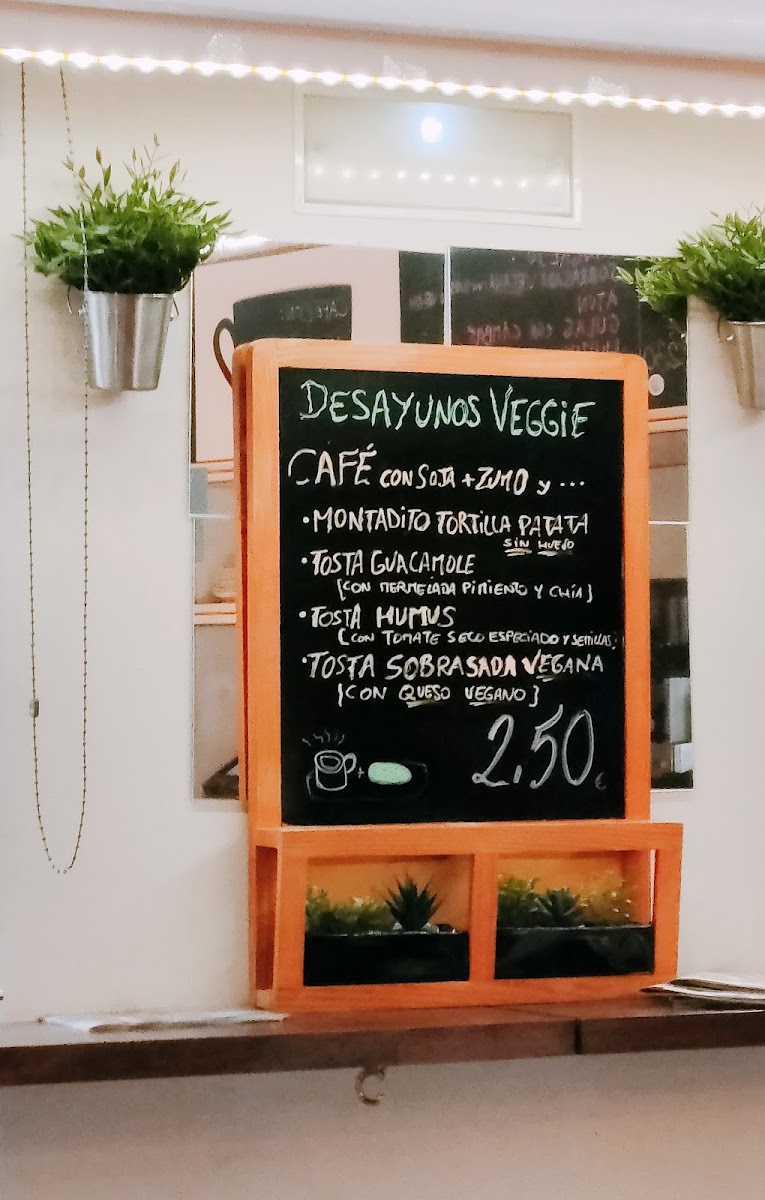 DESAYUNOS VEGGIE
CAFÉ CON SOJA + ZUMO y ...
• MONTADITO TORTILLA PATATA
SIN HUEVO
• TOSTA GUACAMOLE
[CON MERMELADA PIMIENTO Y CHÍA]
• TOSTA HUMUS
(CON TOMATE SECO ESPECIADO Y SEMILLAS)
• TOSTA SOBRASADA VEGANA
{CON QUESO VEGANO}
+
2.50€
ATÚN
GULAS